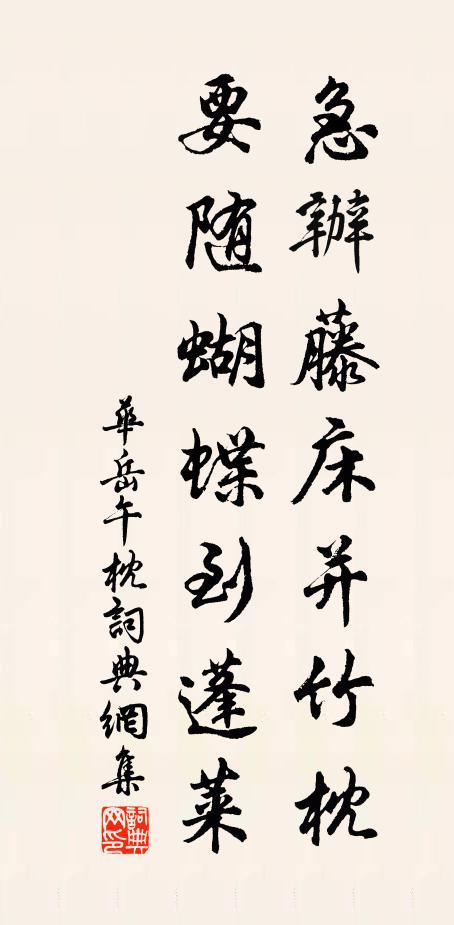 急辦藤床并竹枕
要随蝴蝶到蓬莱
華岳午枕詞典網集
詞典网印